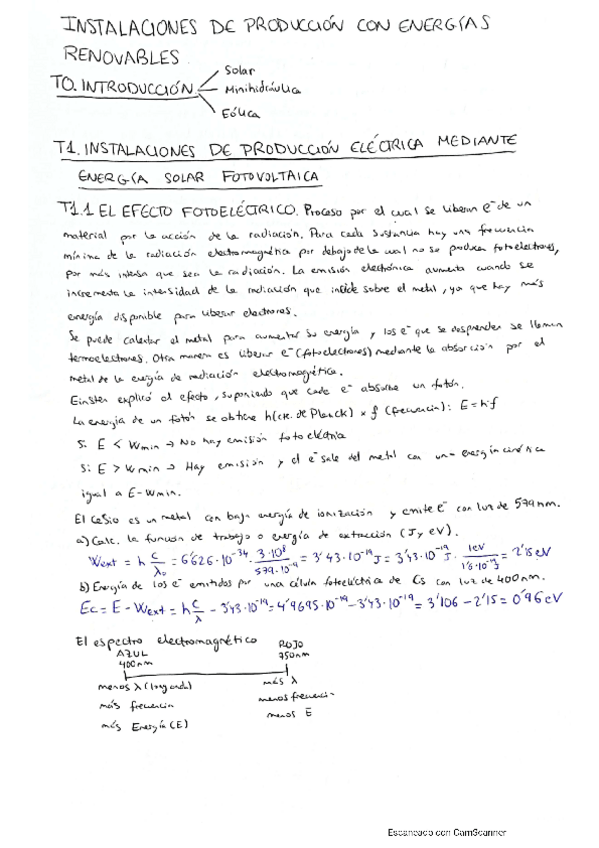 INSTALACIONES DE PRODUCCIÓN CON ENERGÍAS
RENOVABLES.
T0. INTRODUCCIÓN
Solar
Minihidráulica
Eólica
T1. INSTALACIONES DE PRODUCCIÓN ELÉCTRICA MEDIANTE
ENERGÍA SOLAR FOTOVOLTAICA
T1.1 EL EFECTO FOTOELÉCTRICO. Proceso por el cual se liberan e⁻ de un
material por la acción de la radiación. Para cada sustancia hay una frecuencia
mínima de la radiación electromagnética por debajo de la cual no se producen fotoelectrones,
por más intensa que sea la radiación. La emisión electrónica aumenta cuando se
incrementa la intensidad de la radiación que incide sobre el metal, ya que hay más
energía disponible para liberar electrones.
Se puede calentar el metal para aumentar su energía y los e⁻ que se desprenden se llaman
termoelectrones. Otra manera es liberar e⁻ (fotoelectrones) mediante la absorción por el
metal de la energía de radiación electromagnética.
Einstein explicó el efecto, suponiendo que cada e⁻ absorbe un fotón.
La energía de un fotón se obtiene h (cte. de Planck) x f (frecuencia): E = h·f
Si E < Wmin → No hay emisión fotoeléctrica
Si E > Wmin → Hay emisión y el e⁻ sale del metal con una energía cinética
igual a E - Wmin.
El Cesio es un metal con baja energía de ionización y emite e⁻ con luz de 579nm.
a) Calc. la función de trabajo o energía de extracción (J y eV).
Wext = h c/λ₀ = 6'626·10⁻³⁴ · 3·10⁸/579·10⁻⁹ = 3'43·10⁻¹⁹ J = 3'43·10⁻¹⁹ J · 1eV/1'6·10⁻¹⁹J = 2'15eV
b) Energía de los e⁻ emitidos por una célula fotoeléctrica de Cs con luz de 400nm.
Ec = E - Wext = h c/λ - 3'43·10⁻¹⁹ = 4'9695·10⁻¹⁹ - 3'43·10⁻¹⁹ = 3'106 - 2'15 = 0'96 eV
El espectro electromagnético
AZUL
400nm
ROJO
750nm
menos λ (long onda)
más frecuencia
más Energía (E)
más λ
menos frecuencia
menos E
Escaneado con CamScanner